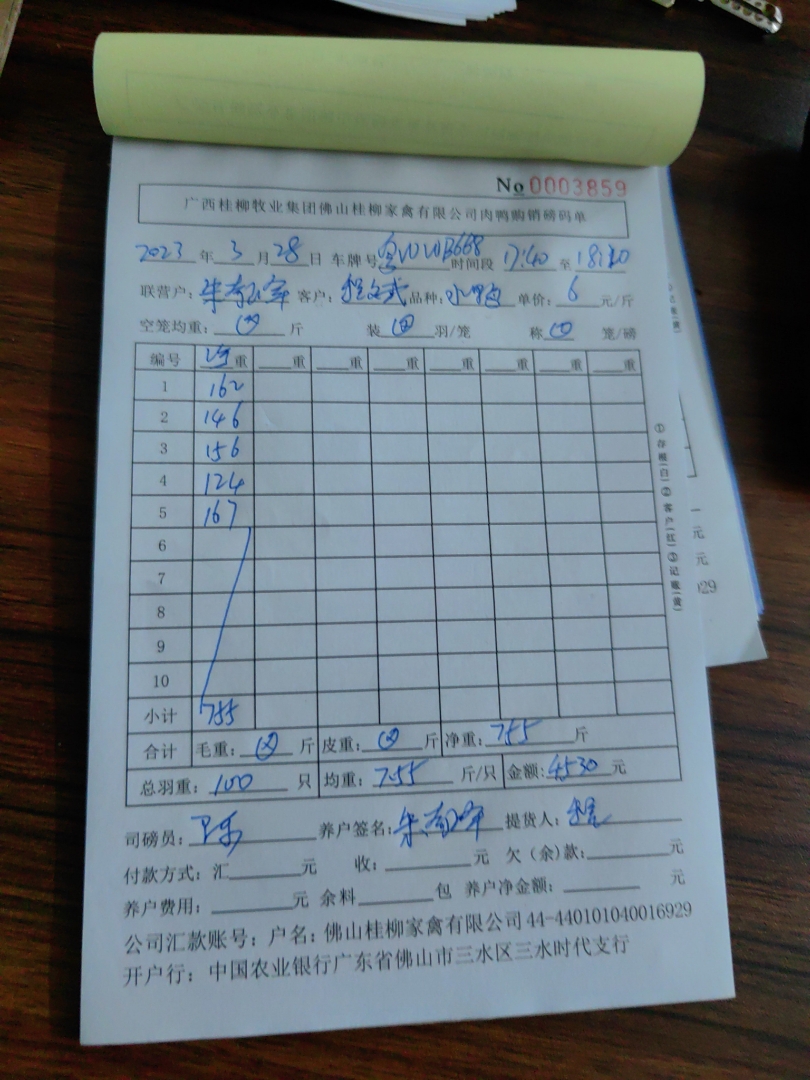 No 0003859
广西桂柳牧业集团佛山桂柳家禽有限公司肉鸭购销磅码单
2023 年 3 月 28 日 车牌号 时间段 17:40 至 18:10
联营户: 客户: 程文武 品种: 单价: 6 元/斤
空笼均重: 斤 装 羽/笼 称 笼/磅
编号 净重 重 重 重 重 重 重 重
1 162
2 146
3 156
4 124
5 167
6
7
8
9
10
小计 755
合计 毛重: 斤 皮重: 斤 净重: 755 斤
总羽重: 100 只 均重: 7.55 斤/只 金额: 4530 元
司磅员: 养户签名: 提货人: 程
付款方式: 汇 元 收: 元 欠(余)款: 元
养户费用: 元 余料 包 养户净金额: 元
公司汇款账号: 户名: 佛山桂柳家禽有限公司 44-440101040016929
开户行: 中国农业银行广东省佛山市三水区三水时代支行
①存根(白)②客户(红)③记账(黄)
元
元
029